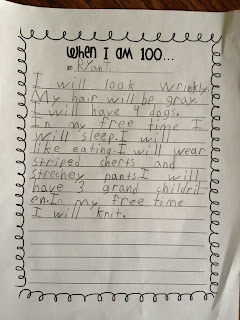 When I am 100...
By Ryan T.
I will look wrinkly.
My hair will be gray.
I will have 4 dogs.
In my free time I
will sleep. I will
like eating. I will wear
striped sherts and
strechey pants. I will
have 3 grand childril-
en. In my free time
I will knit.